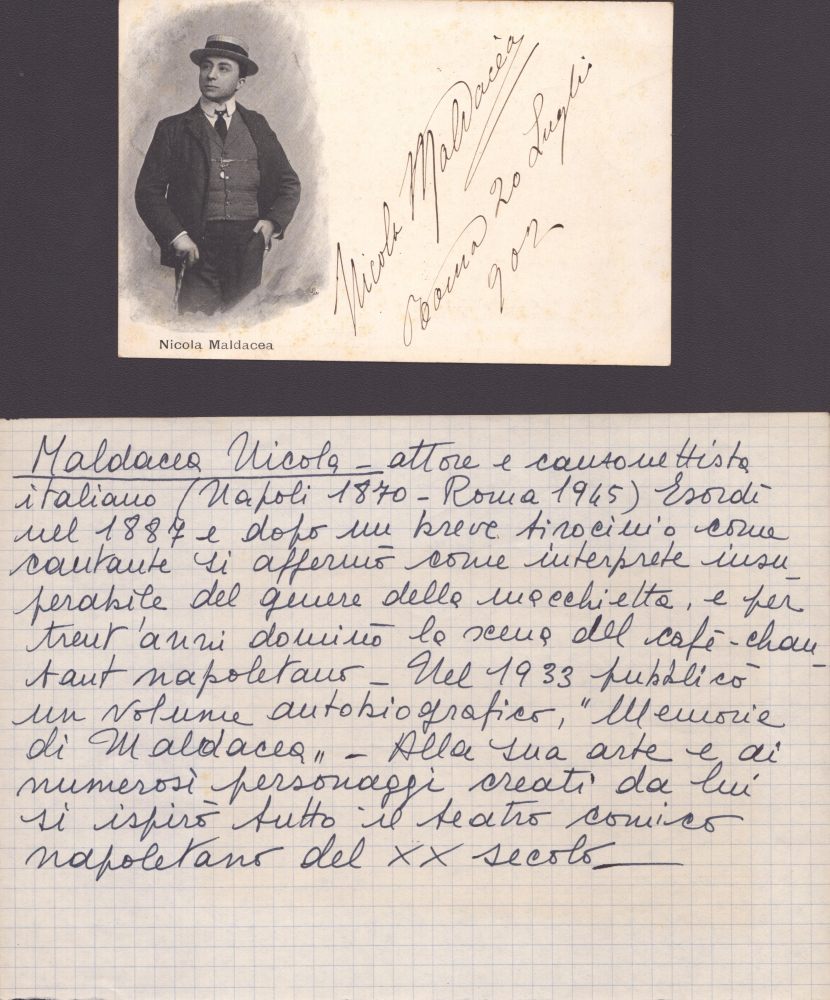 Nicola Maldacea
Roma 20 Luglio
902
Nicola Maldacea
Maldacea Nicola - attore e canzonettista
italiano (Napoli 1870 - Roma 1945) Esordì
nel 1887 e dopo un breve tirocinio come
cantante si affermò come interprete insu
perabile del genere della macchietta, e per
trent'anni dominò la scena del café-chan-
tant napoletano - Nel 1933 pubblicò
un volume autobiografico, "Memorie
di Maldacea" - Alla sua arte e ai
numerosi personaggi creati da lui
si ispirò tutto il teatro comico
napoletano del XX secolo